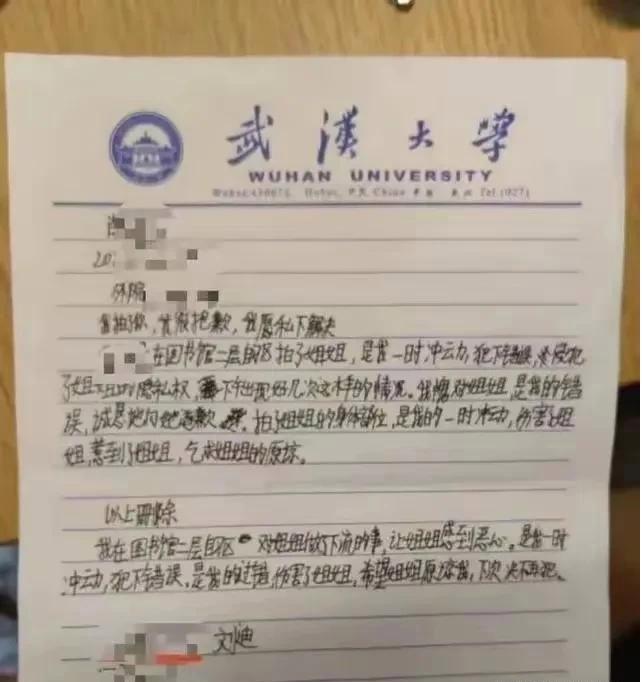 武漢大學
WUHAN UNIVERSITY
Hubei, P.R. China Tel (027)
20
外院
我拍了你,真很抱歉,我愿私下解决
在图书馆二层自区拍了姐姐,是我一时冲动,犯下错误,侵犯
了姐姐的隐私权,不出现好几次这样的情况。我愧对姐姐,是我的错
误,诚恳地向她道歉。拍了姐姐的身体部位,是我的一时冲动,伤害了姐
姐,惹到了姐姐,乞求姐姐的原谅。
以上删除
我在图书馆二层自区对姐姐做了下流的事,让姐姐感到恶心。是我一时
冲动,犯下错误。是我的过错,伤害了姐姐,希望姐姐原谅我,下次决不再犯。